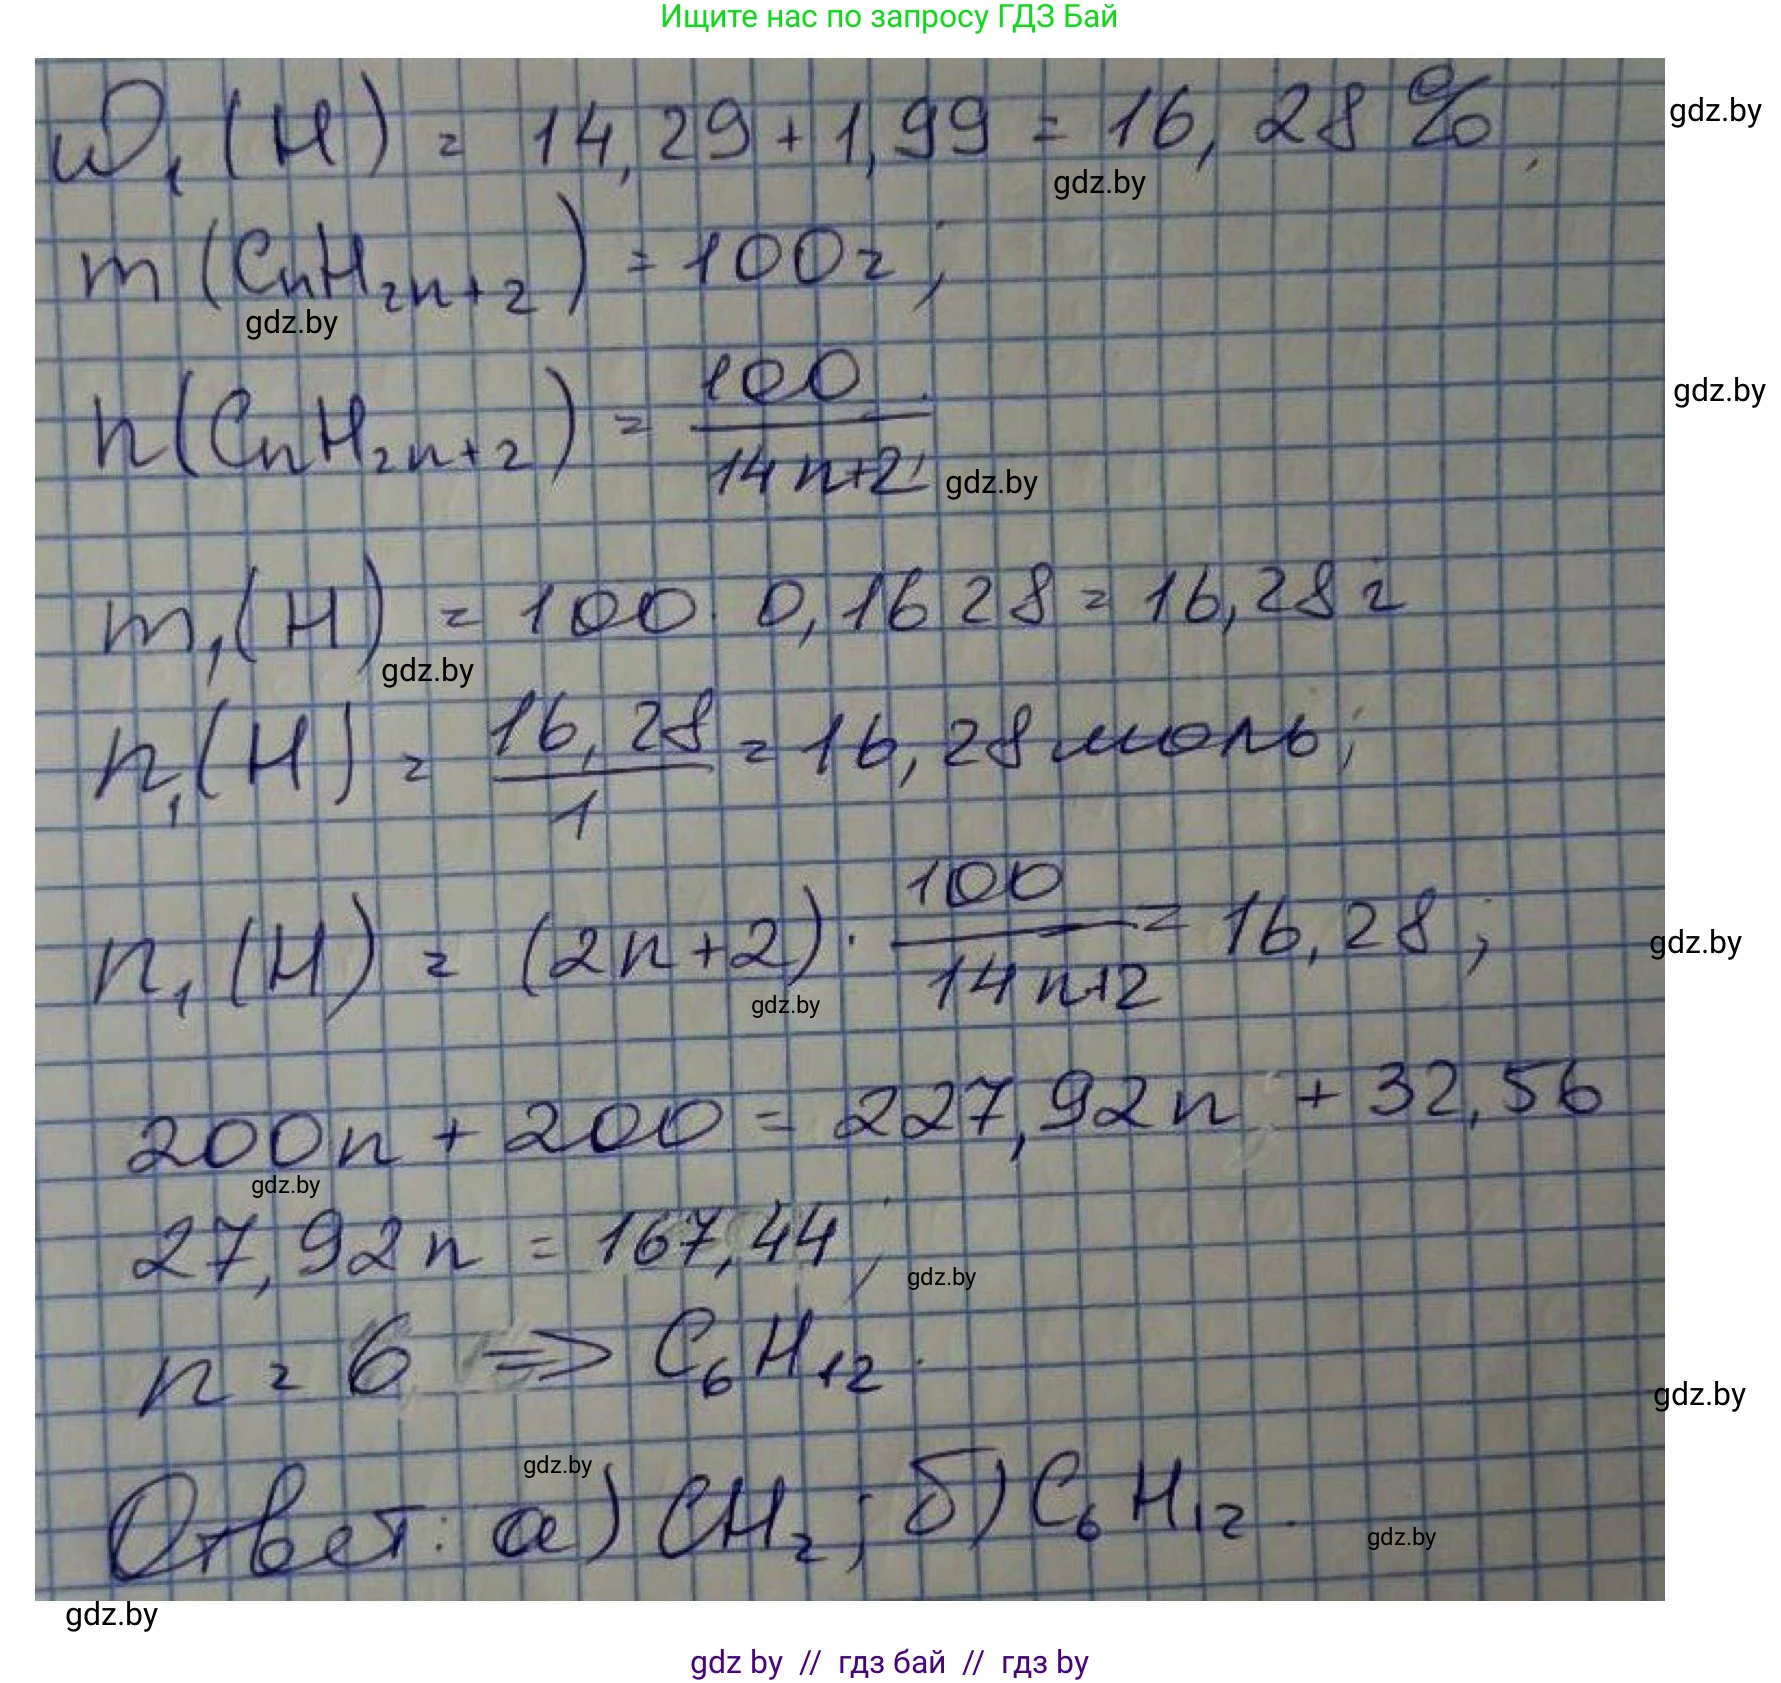 Ищите нас по запросу ГДЗ Бай
W₁(H) = 14,29 + 1,99 = 16,28 %,
gdz.by
gdz.by
m(CnH2n+2) = 100 г;
gdz.by
n(CnH2n+2) = 100 / 14n+2;
gdz.by
gdz.by
m₁(H) = 100 · 0,1628 = 16,28 г
gdz.by
n₁(H) = 16,28 / 1 = 16,28 моль;
n₁(H) = (2n+2) · 100 / 14n+2 = 16,28;
gdz.by
gdz.by
200n + 200 = 227,92n + 32,56
gdz.by
27,92n = 167,44;
gdz.by
n = 6 => C₆H₁₂.
gdz.by
gdz.by
Ответ: а) CH₂; б) C₆H₁₂.
gdz.by
gdz.by
gdz by // гдз бай // гдз by